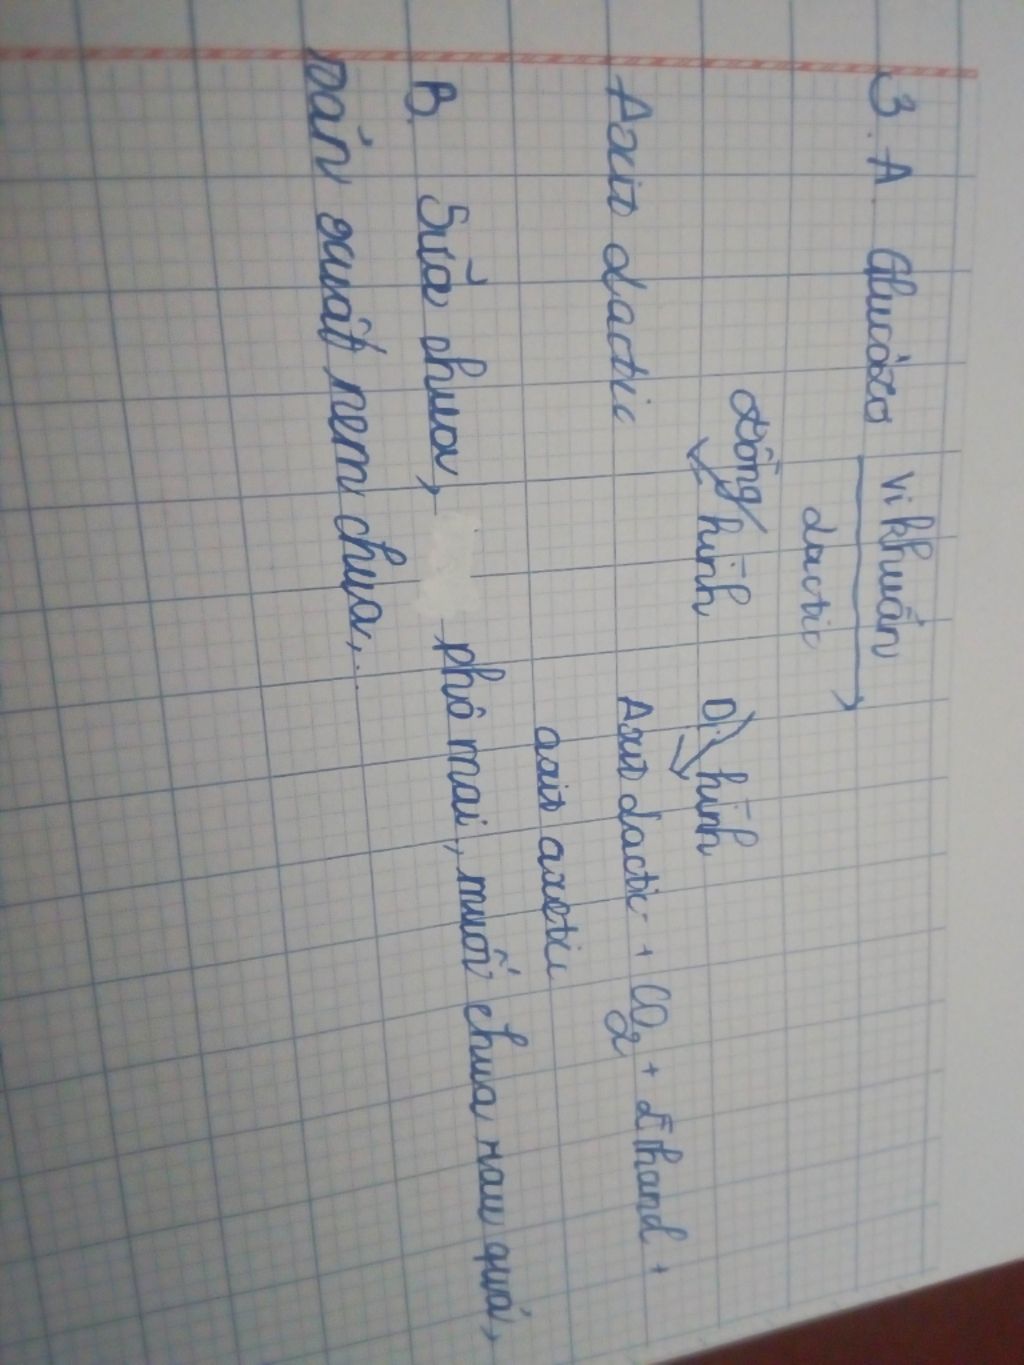 3. A. Glucôzo vi khuẩn
lactic
Đồng hình Dị hình
Axit lactic Axit lactic + CO2 + Ethanol +
axit axetic
B. Sữa chua, phô mai, muối chua rau quả,
sản xuất nem chua,...